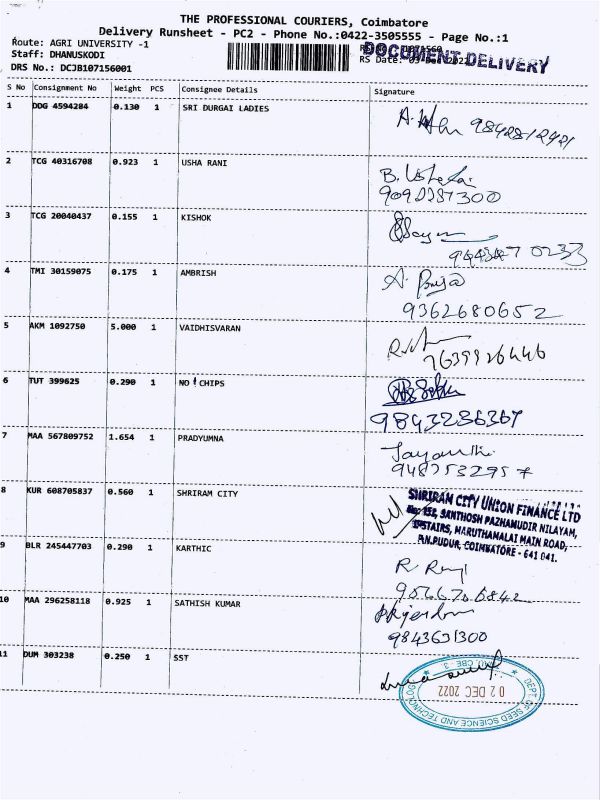 THE PROFESSIONAL COURIERS, Coimbatore
Delivery Runsheet - PC2 - Phone No.:0422-3505555 - Page No.:1
Route: AGRI UNIVERSITY -1
Staff: DHANUSKODI
DRS No.: DCJB107156001
RS Date: 03-Dec-2022
DOCUMENT DELIVERY
S No Consignment No Weight PCS Consignee Details Signature
1 DDG 4594284 0.130 1 SRI DURGAI LADIES
2 TCG 40316708 0.923 1 USHA RANI
B. Usha
3 TCG 20040437 0.155 1 KISHOK
4 TMI 30159075 0.175 1 AMBRISH
9362680652
5 AKM 1092750 5.000 1 VAIDHISVARAN
7639926446
6 TUT 399625 0.290 1 NO 1 CHIPS
9843286367
7 MAA 567809752 1.654 1 PRADYUMNA
Jayanthi
9487532957
8 KUR 608705837 0.560 1 SHRIRAM CITY
SHRIRAM CITY UNION FINANCE LTD
No: 152, SANTHOSH PAZHAMUDIR NILAYAM,
STAIRS, MARUTHAMALAI MAIN ROAD,
P.N.PUDUR, COIMBATORE - 641 041.
9 BLR 245447703 0.290 1 KARTHIC
10 MAA 296258118 0.925 1 SATHISH KUMAR
9843631300
11 DUM 303238 0.250 1 SST
DEPT. OF SEED SCIENCE AND TECHNOLOGY
CBE - 3
02 DEC 2022